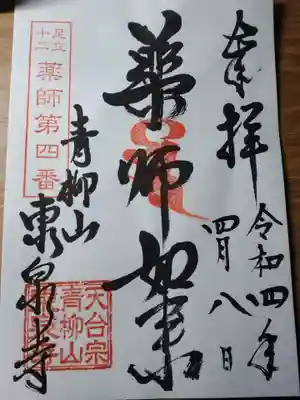 奉拝
令和四年
四月八日
薬師如来
足立
十二
薬師第四番
青柳山
東泉寺
天台宗
青柳山